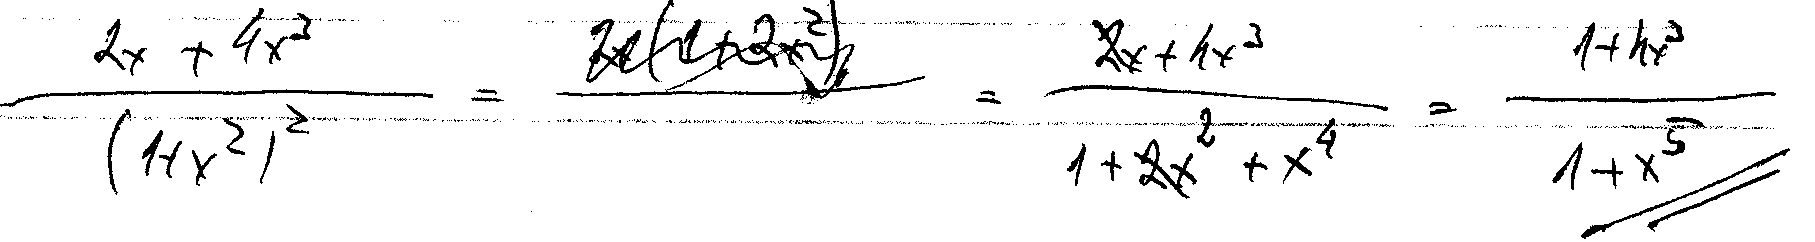 (2x + 4x^3)/((1+x^2)^2) = 2x(1+2x^2) = (2x+4x^3)/(1+2x^2+x^4) = (1+4x^3)/(1+x^5)